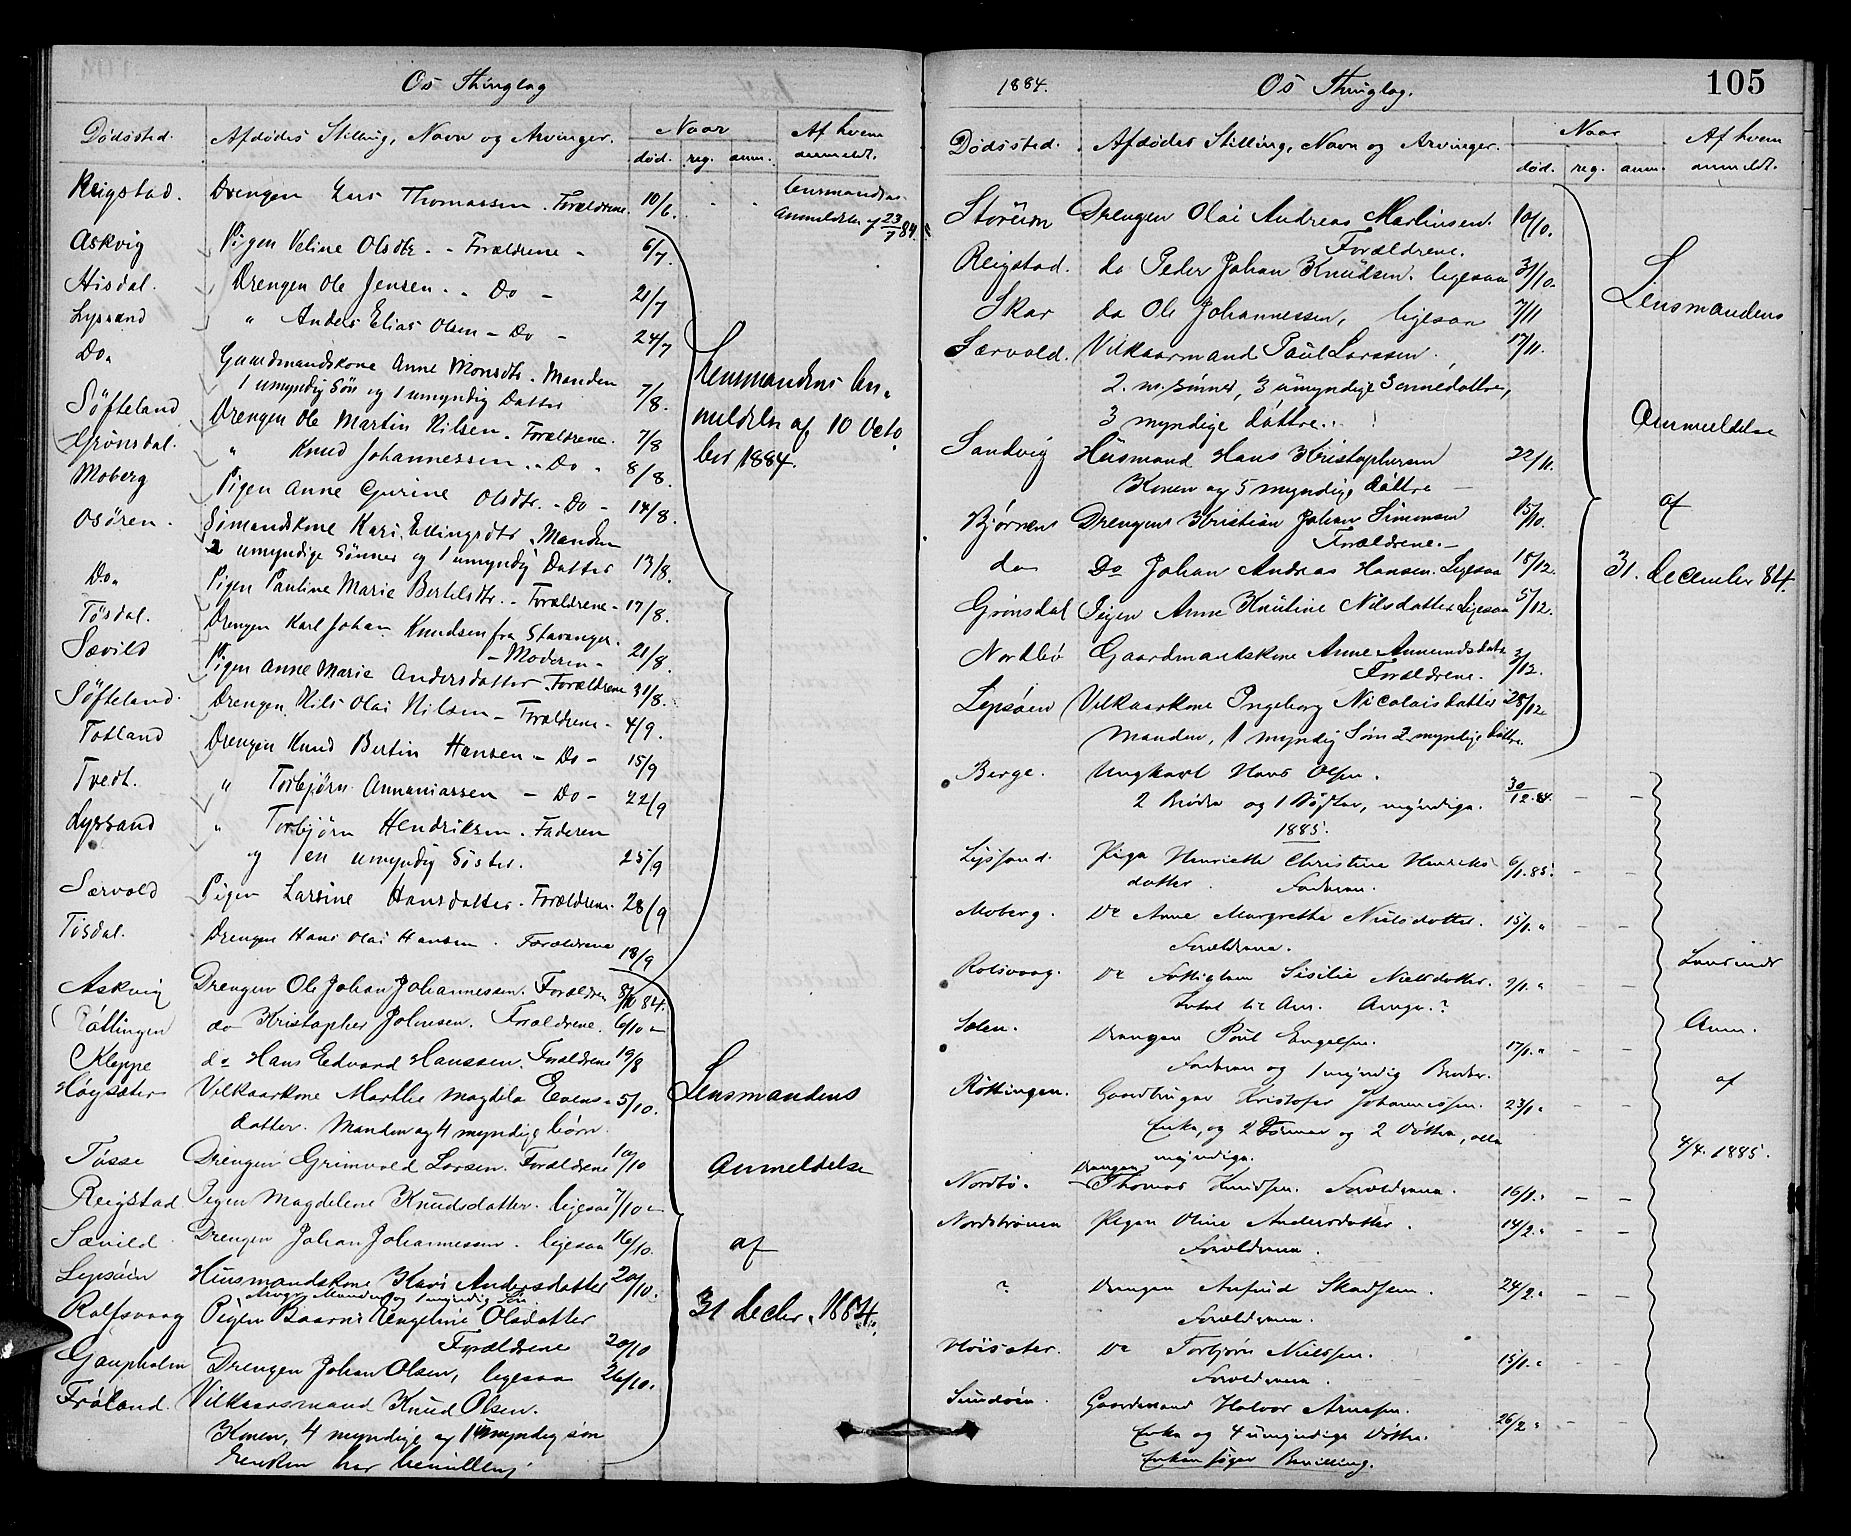 Os Thinglag
Dødssted. Afdødes Stilling, Navn og Arvinger. Naar Af hvem
død. reg. anm. anmeldt.
Reigstad. Drengen Lars Thomassen. Forældrene. 10/6. Lensmandens
Anmeldelse af 23/7 84.
Askvig Pigen Veline Olsdtr. - Forældrene - 6/7.
Hisdal. Drengen Ole Jensen. - Do - 21/7
Lyssand " Anders Elias Olsen - Do - 24/7
Do. Gaardmandskone Anne Monsdtr. Manden
1 umyndig Søn og 1 umyndig Datter 7/8.
Søfteland Drengen Ole Martin Nilsen. Forældrene. 7/8
Grønsdal. " Knud Johannessen. - Do - 8/8.
Moberg Pigen Anne Gurine Olsdtr. - Do - 14/8.
Osøren. Sømandskone Kari Ellingsdtr. Manden
2 umyndige Sønner og 1 umyndig Datter 13/8.
Do. Pigen Pauline Marie Bertelsdtr. - Forældrene - 17/8.
Tøsdal. Drengen Karl Johan Knudsen fra Stavanger.
- Moderen - 21/8.
Sævild Pigen Anne Marie Andersdatter. Forældrene 31/8.
Søfteland. Drengen Nils Olai Nilsen - Forældrene - 4/9.
Totland Drengen Knud Bertin Hansen - Do - 15/9
Tvedt. " Torbjørn Annaniassen - Do - 22/9
Lyssand " Torbjørn Hendriksen. Faderen
og 1 en umyndig Søster. 25/9
Særvold Pigen Larsine Hansdatter. Forældrene. 28/9
Tøsdal. Drengen Hans Olai Hansen. Forældrene 18/9
Lensmandens An-
meldelse af 10 Octo
ber 1884.
Askvig Drengen Ole Johan Johannessen. Forældren 8/10 84.
Røttingen do Kristopher Johnsen. Forældrene. 6/10 -
Kleppe do Hans Edvard Hanssen. Forældrene 19/8
Høysæter Vilkaarkone Marthe Magdela Evens- 5/10.
datter. Manden og 4 myndige børn.
Tøsse Drengen Grimvold Larsen. Forældrene 10/10
Reigstad Pigen Magdelene Knudsdatter. ligesaa 7/10 -
Sævild. Drengen Johan Johannessen. ligesaa 16/10.
Lepsøen Huusmandskone Kari Andersdatter 20/10.
Arvg. Manden og 1 myndig Søn.
Rolfsvaag Pigen Baarni Engeline Olsdatter
Forældrene 20/10
Gaupholm Drengen Johan Olsen, ligesaa 26/10.
Frøland. Vilkaarsmand Knud Olsen.
Konen, 4 myndige og 1 umyndig søn
Enken har bevilling
Lensmandens
Anmeldelse
af
31 decbr. 1884.
1884. Os Thinglag. 105
Dødssted. Afdødes Stilling, Navn og Arvinger. Naar Af hvem
død. reg. anm. anmeldt.
Storum Drengen Olai Andreas Martinsen. 10/10.
Forældrene.
Reigstad. do Peder Johan Knudsen. ligesaa 31/10.
Skar do Ole Johannessen, ligesaa 7/11
Særvold. Vilkaarmand Paul Larssen. 17/11.
2 m. sønner, 3 umyndige Sønnedattre,
3 myndige døttre.
Sandvig Huusmand Hans Kristophersen 22/11.
Konen og 5 myndige døttre -
Bjørnen Drengen Kristian Johan Simonsen 15/10.
Forældrene. -
do Do Johan Andreas Hansen. Ligesaa 18/12.
Grønsdal Pigen Anne Knutine Nilsdatter Ligesaa 5/12.
Nordbø Gaardmandskone Anne Anmundsdatr 3/12.
Forældrene.
Lepsøen Vilkaarkone Ingeborg Nicolaisdatter 28/12
Manden, 1 myndig Søn 2 myndige døttre.
Lensmandens
Anmeldelse
af
31. december 84.
Berge. Ungkarl Hans Olsen. 30/12.84. - -
2 Brødre og 1 Søster, myndige.
1885.
Lyssand. Pige Henriette Christine Henriks 6/1.85. - -
datter. Faderen.
Moberg. Do Anne Margrethe Nielsdatter. 15/1. " - -
Forældrene.
Rolsvaag. Do Fattiglem Sisilie Nielsdatter. 9/1. " - -
?
Solen. Drengen Poul Engelsen. 17/1. " - -
Faderen og 1 myndig Broder.
Røttingen. Gaardbruger Kristofer Johannessen. 23/1. " - -
Enke, og 2 Sønner og 2 Døttre, alle
myndige.
Nordbø. Drengen Thomas Knudsen. Forældrene. 16/1. " - -
Nordstrønen Pigen Oline Andersdatter. 14/2. " - -
Forældrene.
? Drengen Arnfind Skadsem. 24/2. " - -
Forældrene.
Høisæter. Do Torbjørn Nielssen. 15/1. " - -
Forældrene.
Sundøen. Gaardmand Halvor Arnesen. 26/2 " - -
Enke og 4 umyndige Døttre.
Enken søger Bevilling.
Anm.
af
4/4. 1885.